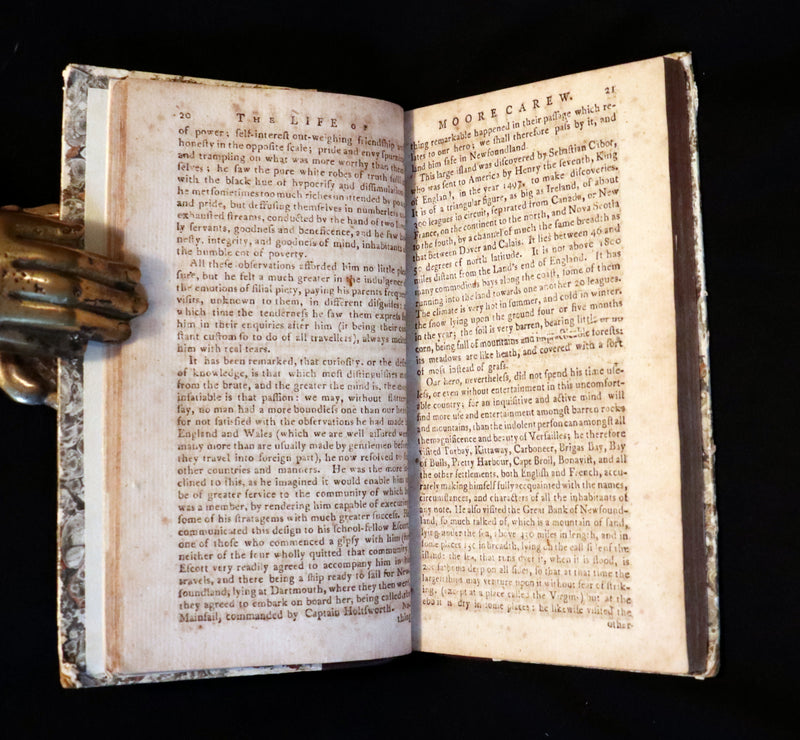 20 THE LIFE OF
of power; ſelf-intereſt out-weighing friendſhip and
honeſty in the oppoſite ſcale; pride and envy ſpurning
and trampling on what was more worthy than them-
ſelves; he ſaw the pure white robes of truth ſullied
with the black hue of hypocriſy and diſſimulation;
he met ſometimes too much riches un attended by pomp
and pride, but deffuſing themſelves in numberleſs un-
exhauſted ſtreams, conducted by the hand of two
ly ſervants, goodneſs and beneficence, and he ſaw ho-
neſty, integrity, and goodneſs of mind, inhabitants of
the humble cot of poverty.
All theſe obſervations afforded him no little plea-
ſure, but he felt a much greater in the indulgence of
the emotions of filial piety, paying his parents frequent
viſits, unknown to them, in different diſguiſes; at
which time the tenderneſs he ſaw them expreſs for
him in their enquiries after him (it being their con-
ſtant cuſtom ſo to do of all travellers), always melted
him with real tears.
It has been remarked, that curioſity, or the deſire
of knowledge, is that which moſt diſtinguiſhes man
from the brute, and the greater the mind is, the more
inſatiable is that paſſion: we may, without flattery
ſay, no man had a more boundleſs one than our hero;
for not ſatisfied with the obſervations he had made in
England and Wales (which we are well aſſured were
many more than are uſually made by gentlemen before
they travel into foreign part), he now reſolved to ſee
other countries and manners. He was the more in-
clined to this, as he imagined it would enable him to
be of greater ſervice to the community of which he
was a member, by rendering him capable of executing
ſome of his ſtratagems with much greater ſucceſs. He
communicated this deſign to his ſchool-fellow Eſcott,
one of thoſe who commenced a gipſy with him (for
neither of the four wholly quitted that community)
Eſcott very readily agreed to accompany him in his
travels, and there being a ſhip ready to ſail for New-
foundland, lying at Dartmouth, where they then were,
they agreed to embark on board her, being called the
Mainſail, commanded by Captain Holtſworth. No-
thing
MOORE CAREW. 21
thing remarkable happened in their paſſage which re-
lates to our hero; we ſhall therefore paſs by it, and
land him ſafe in Newfoundland.
This large iſland was diſcovered by Sebaſtian Cibot,
who was ſent to America by Henry the ſeventh, King
of England, in the year 1497, to make diſcoveries.
It is of a triangular figure, as big as Ireland, of about
300 leagues in circuit, ſeparated from Canada, or New
France, on the continent to the north, and Nova Scotia
to the ſouth, by a channel of much the ſame breadth as
that between Dover and Calais. It lies between 46 and
52 degrees of north latitude. It is not above 1800
miles diſtant from the Land's end of England. It has
many commodious bays along the coaſt, ſome of them
running into the land towards one another 20 leagues.
The climate is very hot in ſummer, and cold in winter,
the ſnow lying upon the ground four or five months
in the year; the ſoil is very barren, bearing little or no
corn, being full of mountains and foreſts;
its meadows are like heath, and covered with a ſort
of moſs inſtead of graſs.
Our hero, nevertheleſs, did not ſpend his time uſe-
leſs, or even without entertainment in this uncomfort-
able country; for an inquiſitive and active mind will
find more uſe and entertainment amongſt barren rocks
and mountains, than the indolent perſon can amongſt all
the magnificence and beauty of Verſailles; he therefore
viſited Torbay, Kittaway, Carboneer, Brigas Bay, Bay
of Bulls, Pretty Harbour, Cape Broil, Bonaviſt, and all
the other ſettlements, both Engliſh and French, accu-
rately making himſelf fully acquainted with the names,
circumſtances, and characters of all the inhabitants of
any note. He alſo viſited the Great Bank of Newfound-
land, ſo much talked of, which is a mountain of ſand,
lying under the ſea, above 450 miles in length, and in
ſome places 150 in breadth, lying on the eaſt ſide of the
iſland: the ſea, that runs over it, when it is flood, is
200 fathoms deep on all ſides, ſo that at that time the
largeſt ſhips may venture upon it without fear of ſtrik-
ing, (except at a place called the Virgins) but at the
ebb it is dry in ſome places: he likewiſe viſited the
other-